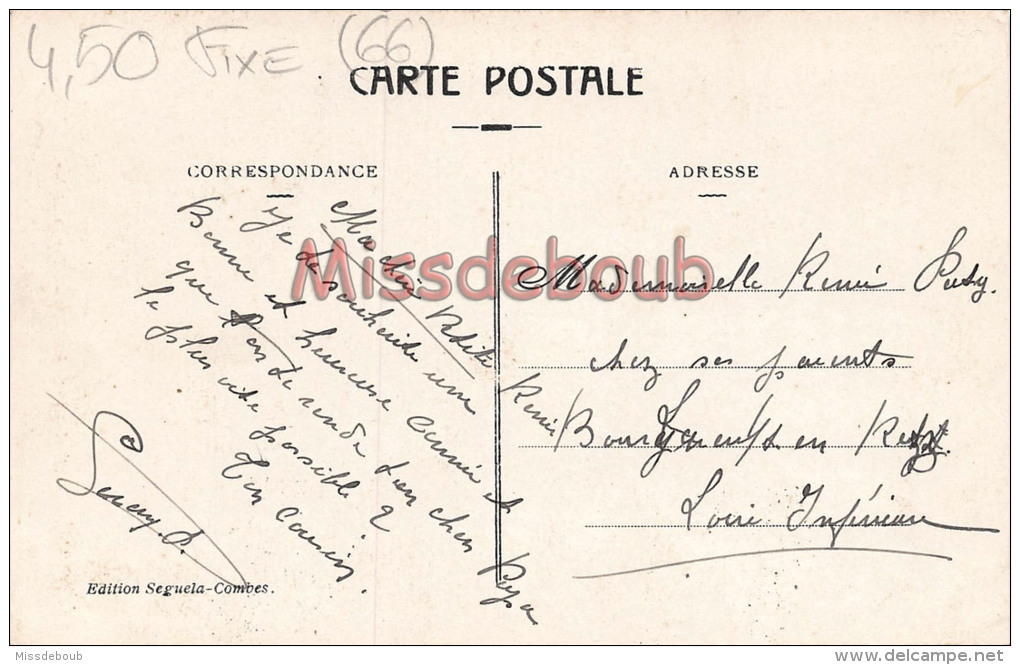 4,50 FIXE (66)
CARTE POSTALE
CORRESPONDANCE
ADRESSE
Ma chère petite Renée
Je te souhaite une
Bonne et heureuse année et
que l'on te rende ton cher Papa
le plus vite possible
Ton cousin
Missdeboub
Mademoiselle Renée
chez ses parents
Bourgneuf en Retz
Loire Inférieure
Edition Seguela-Combes.
Missdeboub
www.delcampe.net